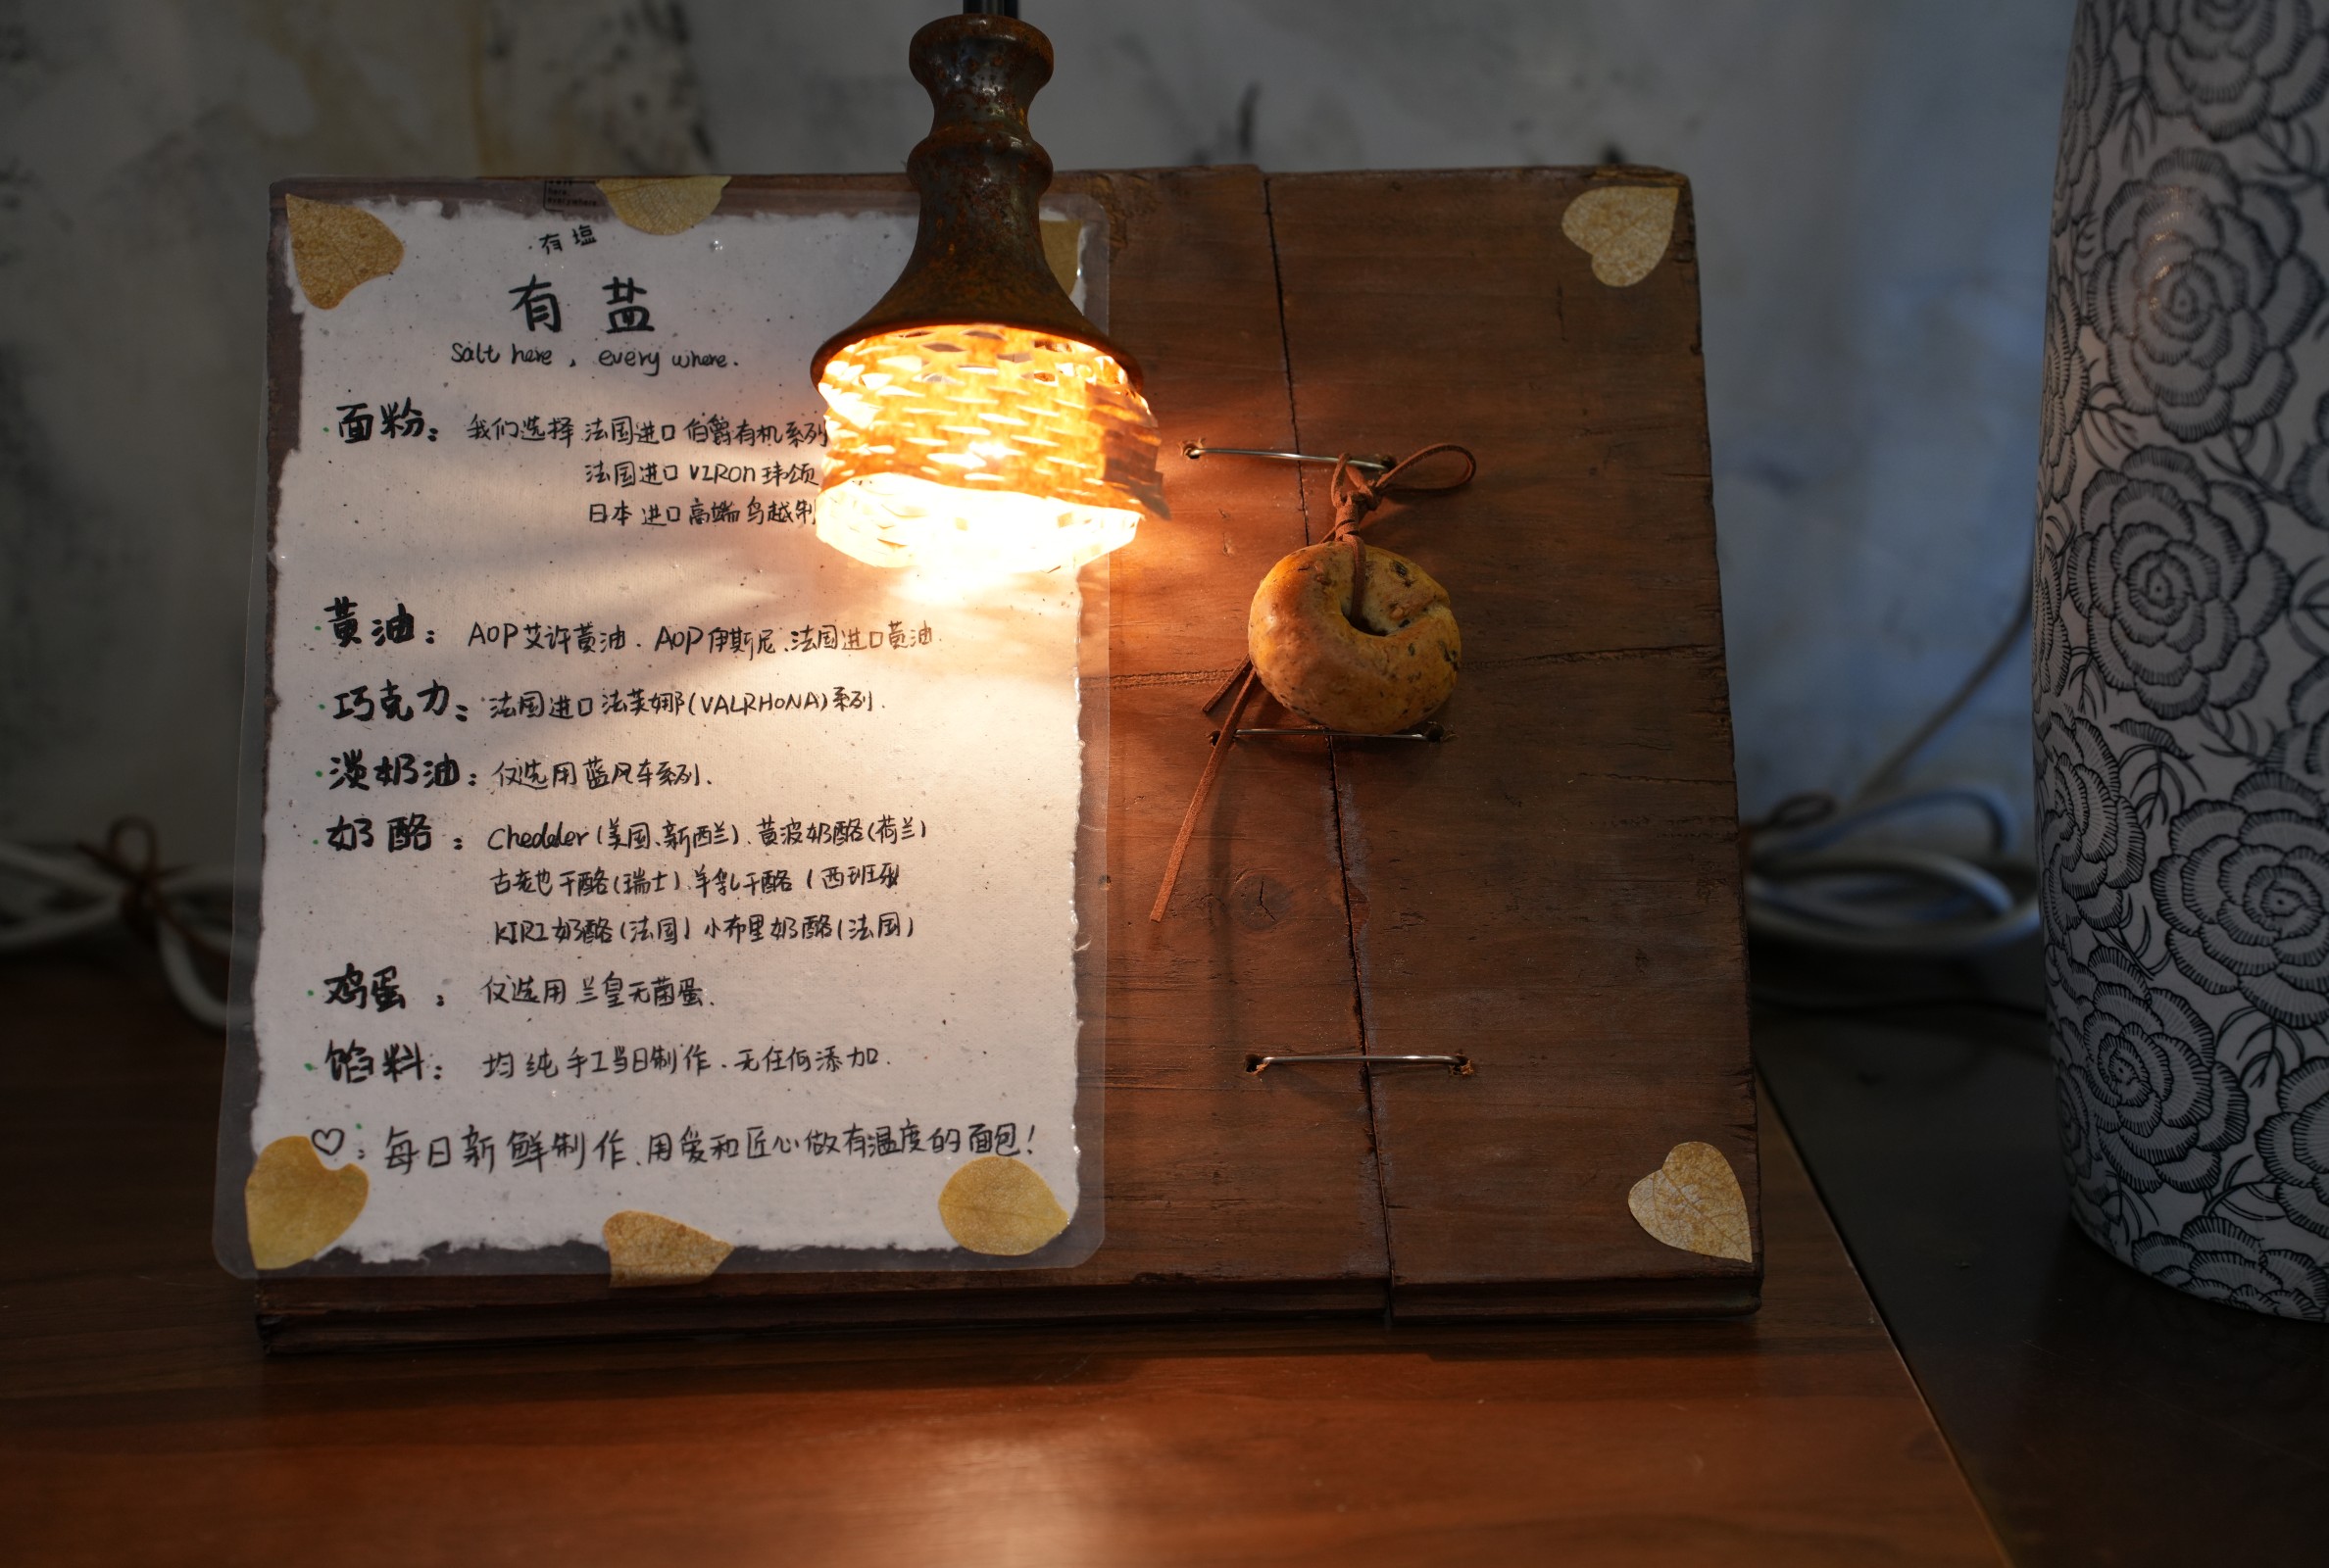 here,
everywhere.
·有塩
有盐
Salt here, every where.
·面粉: 我们选择 法国进口 伯爵有机系列
法国进口 VIRON 玮颂
日本进口 高端 鸟越制
·黄油: AOP艾许黄油. AOP伊斯尼、法国进口黄油.
·巧克力: 法国进口 法芙娜(VALRHONA)系列.
·淡奶油: 仅选用 蓝风车系列.
·奶酪: Chedder(美国、新西兰)、黄波奶酪(荷兰)
古老也干酪(瑞士)、羊乳干酪(西班牙
KIRI奶酪(法国) 小布里奶酪(法国)
·鸡蛋: 仅选用 兰皇无菌蛋.
·馅料: 均纯手工当日制作.无任何添加.
♡: 每日新鲜制作、用爱和匠心做有温度的面包!